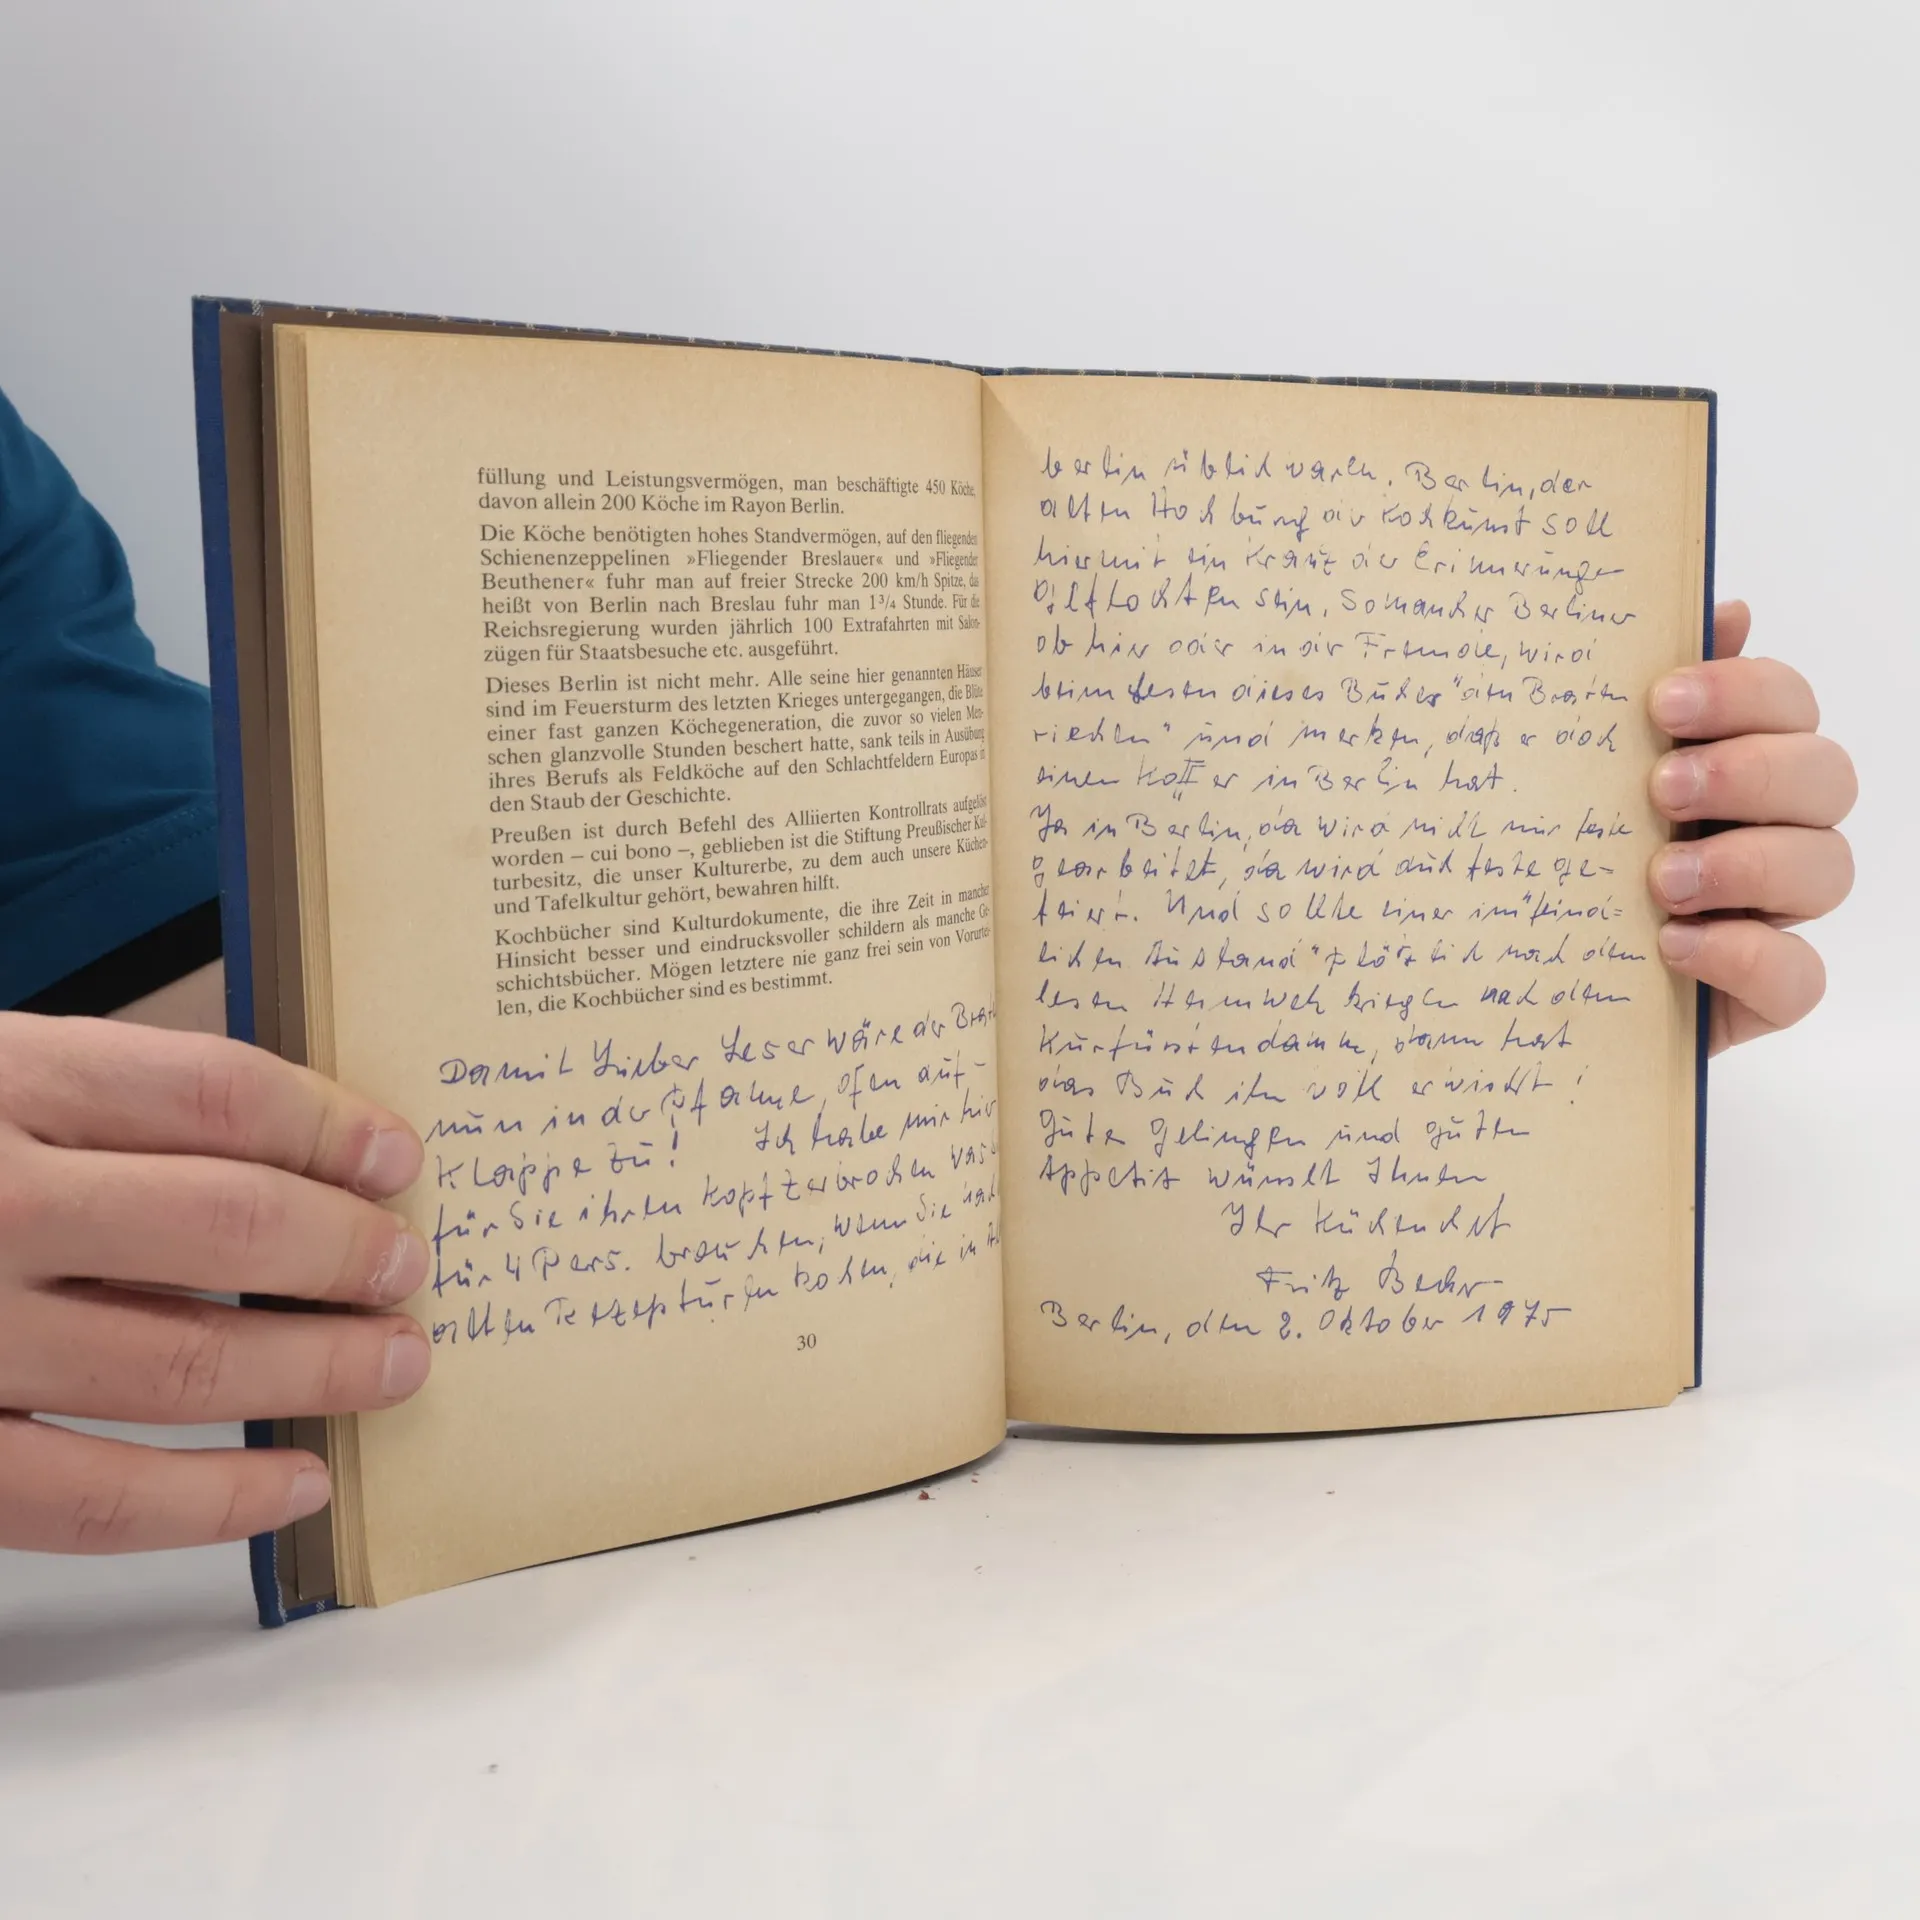 füllung und Leistungsvermögen, man beschäftigte 450 Köche,
davon allein 200 Köche im Rayon Berlin.
Die Köche benötigten hohes Standvermögen, auf den fliegenden
Schienenzeppelinen »Fliegender Breslauer« und »Fliegender
Beuthener« fuhr man auf freier Strecke 200 km/h Spitze, das
heißt von Berlin nach Breslau fuhr man 1 3/4 Stunde. Für die
Reichsregierung wurden jährlich 100 Extrafahrten mit Salon-
zügen für Staatsbesuche etc. ausgeführt.
Dieses Berlin ist nicht mehr. Alle seine hier genannten Häuser
sind im Feuersturm des letzten Krieges untergegangen, die Blüte
einer fast ganzen Köchegeneration, die zuvor so vielen Men-
schen glanzvolle Stunden beschert hatte, sank teils in Ausübung
ihres Berufs als Feldköche auf den Schlachtfeldern Europas in
den Staub der Geschichte.
Preußen ist durch Befehl des Alliierten Kontrollrats aufgelöst
worden – cui bono –, geblieben ist die Stiftung Preußischer Kul-
turbesitz, die unser Kulturerbe, zu dem auch unsere Küchen-
und Tafelkultur gehört, bewahren hilft.
Kochbücher sind Kulturdokumente, die ihre Zeit in mancher
Hinsicht besser und eindrucksvoller schildern als manche Ge-
schichtsbücher. Mögen letztere nie ganz frei sein von Vorurtei-
len, die Kochbücher sind es bestimmt.
Damit Lieber Leser wäre der
nun in der Pfanne, Ofen auf-
Klappe zu! Ich habe mir hier
für Sie ihren Kopf zerbrochen was
für 4 Pers. brauchen, wenn Sie nach
alten Rezepturen kochen, die in
30
berlin üblich waren. Berlin, der
alten Hochburg der Kochkunst soll
hiermit ein Kranz der Erinnerunge
geflochten sein. So mancher Berliner
ob hier oder in der Fremde, wird
beim Lesen dieses Buches "den Braten
riechen" und merken, daß er doch
einen Koffer in Berlin hat.
Ja in Berlin, da wird nicht nur feste
gearbeitet, da wird auch feste ge-
feiert. Und sollte einer im "feind=
lichen Ausland" plötzlich nach dem
lesen Heimweh kriegen nach dem
Kurfürstendamm, dann hat
das Buch ihn voll erwischt!
Gutes Gelingen und guten
Appetit wünscht Ihnen
Ihr Küchenchef
Fritz Becker
Berlin, den 2. Oktober 1975